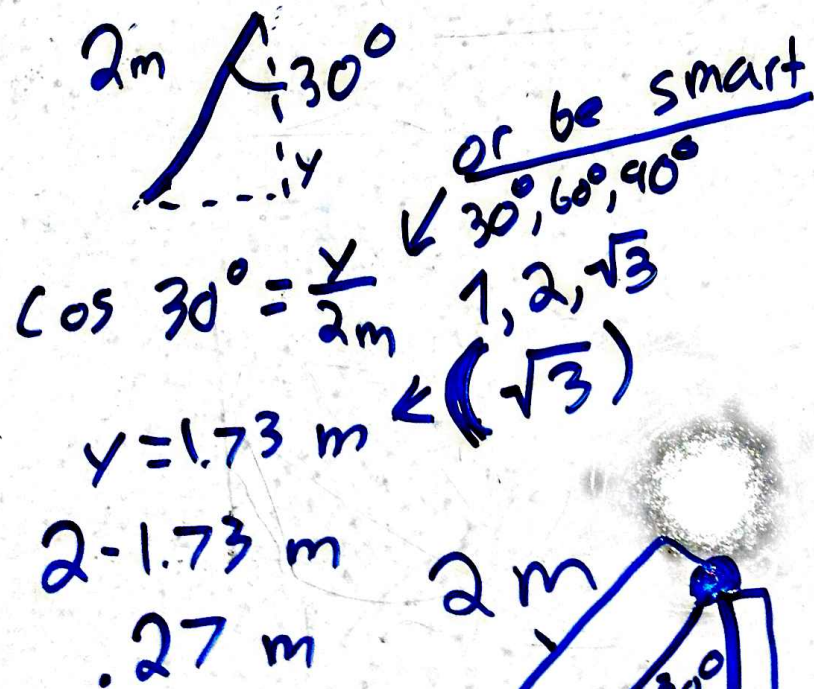 2m
30°
y
or be smart
30°, 60°, 90°
1, 2, √3
cos 30° = y/2m
(√3)
y = 1.73 m
2 - 1.73 m
.27 m
2 m